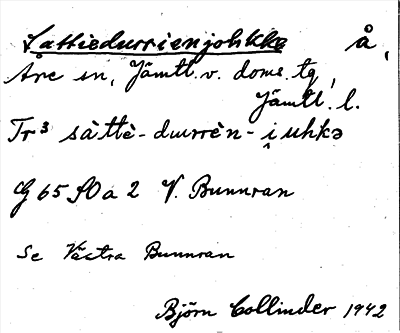 Sattiedurrienjohkke å,
Åre sn, Jämtl. v. doms. tg,
Jämtl. l.
Tr³ sàttè-durrèn-i̯uhkə
G 65 f0 a 2 V. Bunnran
Se Västra Bunnran
Björn Collinder 1942